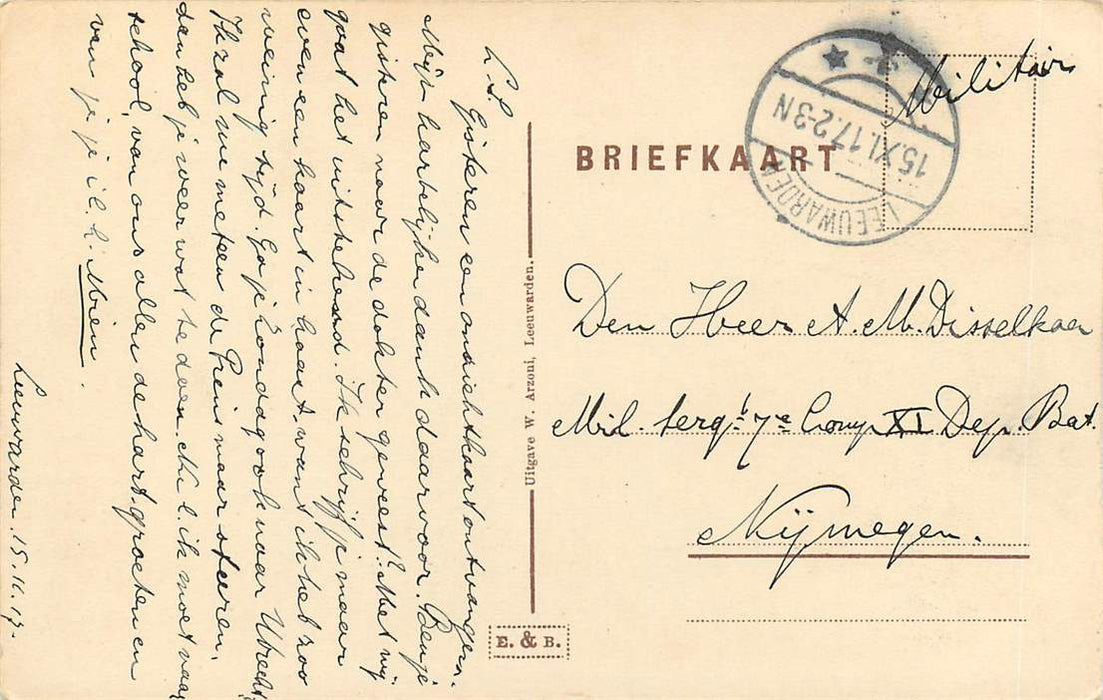 L.S.
Gisteren een ansichtkaart ontvangen.
Mijn hartelijke dank daarvoor. Ben je
gisteren naar de dokter geweest? Met mij
gaat het uitstekend. Ik schrijf je maar
even een kaart in haast, want ik heb zoo
weinig tijd. Ga je Zondag ook naar Utrecht
Ik zal me meteen de Prins maar sturen.
dan heb je weer wat te doen. ik moet naar
school, van ons allen de hart. groeten en
van je je i. l. Mien.
Leeuwarden. 15.11.17.
Uitgave W. Arzoni, Leeuwarden.
E. & B.
BRIEFKAART
LEEUWARDEN
15.XI.17.2-3N
Militair
Den Heer A. M. Disselkoen
Mil. serg. 7e Comp XI Dep. Bat.
Nijmegen.